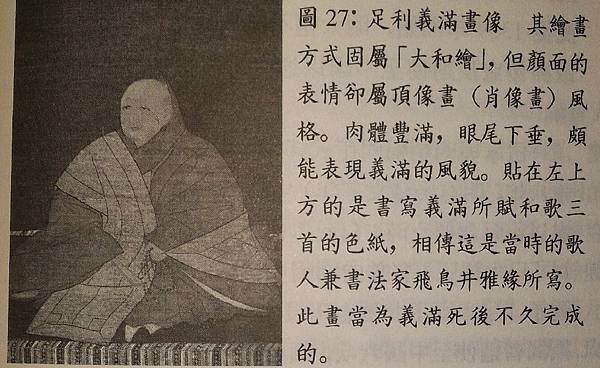 圖27：足利義滿畫像　其繪畫
方式固屬「大和繪」，但顏面的
表情卻屬頂像畫（肖像畫）風
格。肉體豐滿，眼尾下垂，頗
能表現義滿的風貌。貼在左上
方的是書寫義滿所賦和歌三
首的色紙，相傳這是當時的歌
人兼書法家飛鳥井雅緣所寫。
此畫當為義滿死後不久完成
的。